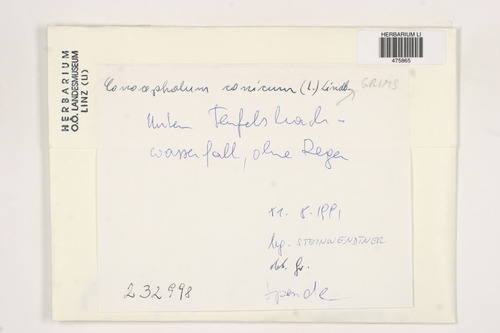 HERBARIUM LI
475865
HERBARIUM
O.Ö. LANDESMUSEUM
LINZ (LI)
Conocephalum conicum (L.) Lindb.
GRIMS
Unten Teufelsbach-
wasserfall, ohne Regen
11. 8. 1991
leg. STEINWENDTNER
det. Gr.
Spende
232998